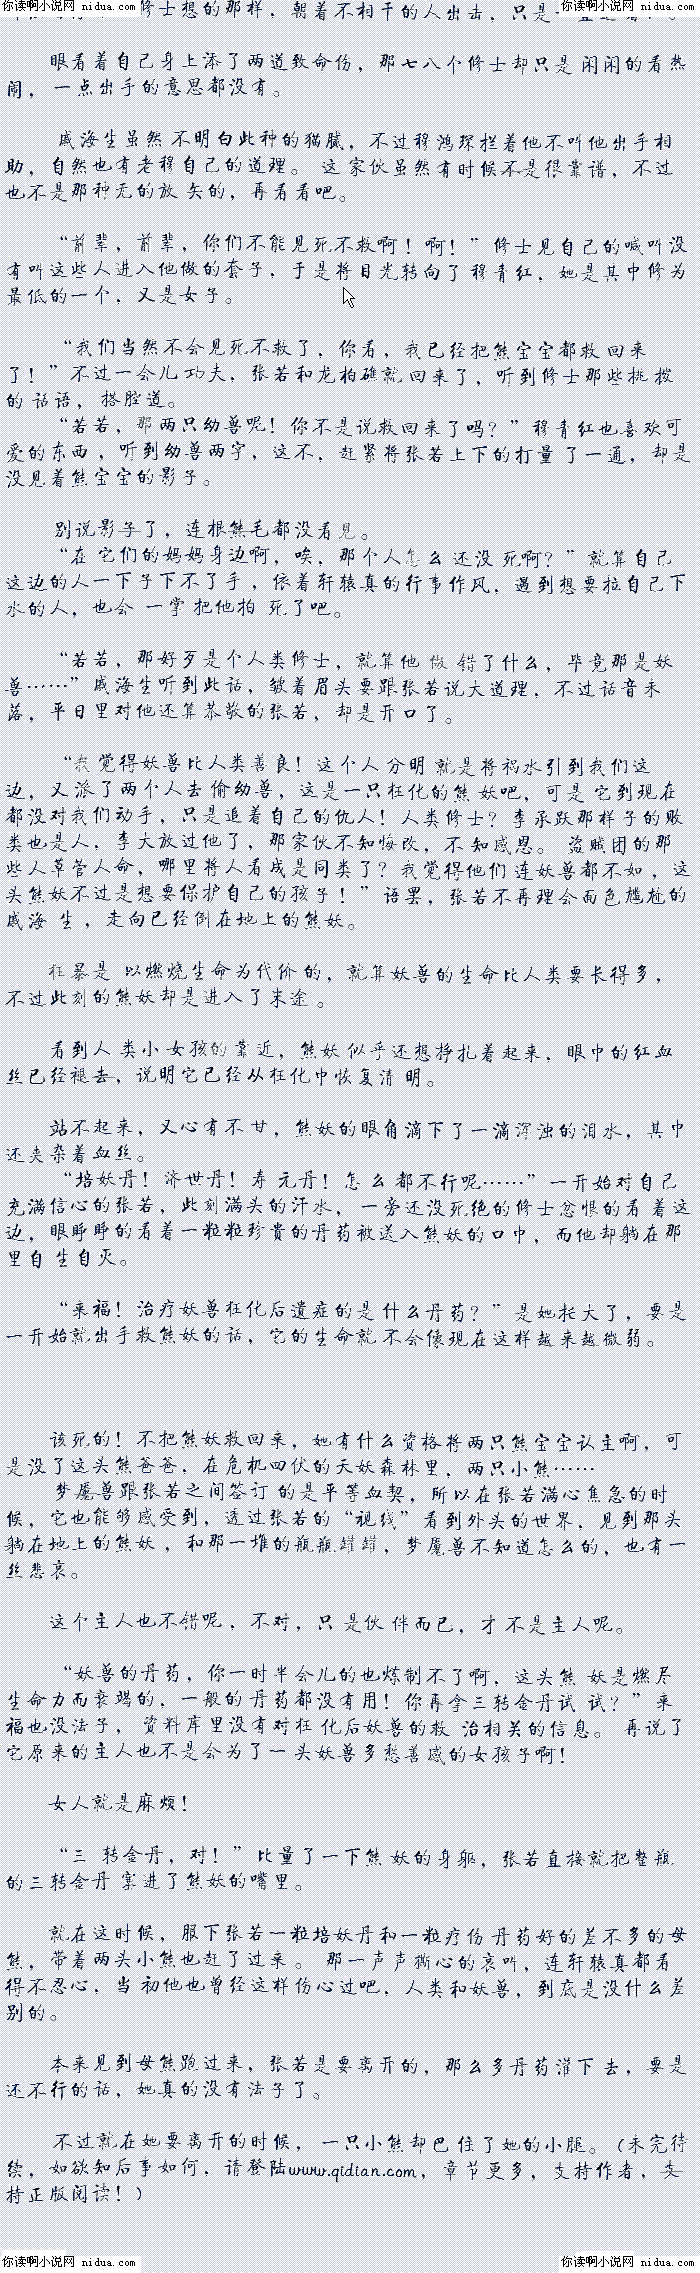 你读啊小说网 nidua.com 你读啊小说网 nidua.com
修士想的那样，朝着不相干的人出击，只是一直追着
眼看着自己身上添了两道致命伤，那七八个修士却只是闲闲的看热
闹，一点出手的意思都没有。
戚海生虽然不明白此种的猫腻，不过穆鸿琛拦着他不叫他出手相
助，自然也有老穆自己的道理。这家伙虽然有时候不是很靠谱，不过
也不是那种无的放矢的，再看看吧。
“前辈，前辈，你们不能见死不救啊！啊！”修士见自己的喊叫没
有叫这些人进入他做的套子，于是将目光转向了穆青红，她是其中修为
最低的一个，又是女子。
“我们当然不会见死不救了，你看，我已经把熊宝宝都救回来
了！”不过一会儿功夫，张若和龙柏礁就回来了，听到修士那些挑拨
的话语，搭腔道。
“若若，那两只幼兽呢！你不是说救回来了吗？”穆青红也喜欢可
爱的东西，听到幼兽两字，这不，赶紧将张若上下的打量了一通，却是
没见着熊宝宝的影子。
别说影子了，连根熊毛都没看见。
“在它们的妈妈身边啊，唉，那个人怎么还没死啊？”就算自己
这边的人一下子下不了手，依着轩辕真的行事作风，遇到想要拉自己下
水的人，也会一掌把他拍死了吧。
“若若，那好歹是个人类修士，就算他做错了什么，毕竟那是妖
兽……”戚海生听到此话，皱着眉头要跟张若说大道理，不过话音未
落，平日里对他还算恭敬的张若，却是开口了。
“我觉得妖兽比人类善良！这个人分明就是将祸水引到我们这
边，又派了两个人去偷幼兽，这是一只狂化的熊妖吧，可是它到现在
都没对我们动手，只是追着自己的仇人！人类修士？李承跃那样子的败
类也是人，李大放过他了，那家伙不知悔改，不知感恩。盗贼团的那
些人草菅人命，哪里将人看成是同类了？我觉得他们连妖兽都不如，这
头熊妖不过是想要保护自己的孩子！”语罢，张若不再理会面色尴尬的
戚海生，走向已经倒在地上的熊妖。
狂暴是以燃烧生命为代价的，就算妖兽的生命比人类要长得多，
不过此刻的熊妖却是进入了末途。
看到人类小女孩的靠近，熊妖似乎还想挣扎着起来，眼中的红血
丝已经褪去，说明它已经从狂化中恢复清明。
站不起来，又心有不甘，熊妖的眼角滴下了一滴浑浊的泪水，其中
还夹杂着血丝。
“培妖丹！济世丹！寿元丹！怎么都不行呢……”一开始对自己
充满信心的张若，此刻满头的汗水，一旁还没死绝的修士忿恨的看着这
边，眼睁睁的看着一粒粒珍贵的丹药被送入熊妖的口中，而他却躺在那
里自生自灭。
“来福！治疗妖兽狂化后遗症的是什么丹药？”是她托大了，要是
一开始就出手救熊妖的话，它的生命就不会像现在这样越来越微弱。
该死的！不把熊妖救回来，她有什么资格将两只熊宝宝认主啊，可
是没了这头熊爸爸，在危机四伏的天妖森林里，两只小熊……
梦魇兽跟张若之间签订的是平等血契，所以在张若满心焦急的时
候，它也能够感受到，透过张若的“视线”看到外头的世界，见到那头
躺在地上的熊妖，和那一堆的瓶瓶罐罐，梦魇兽不知道怎么的，也有一
丝悲哀。
这个主人也不错呢，不对，只是伙伴而已，才不是主人呢。
“妖兽的丹药，你一时半会儿的也炼制不了啊，这头熊妖是燃尽
生命力而衰竭的，一般的丹药都没有用！你再拿三转金丹试试？”来
福也没法子，资料库里没有对狂化后妖兽的救治相关的信息。再说了
它原来的主人也不是会为了一头妖兽多愁善感的女孩子啊！
女人就是麻烦！
“三转金丹，对！”比量了一下熊妖的身躯，张若直接就把整瓶
的三转金丹塞进了熊妖的嘴里。
就在这时候，服下张若一粒培妖丹和一粒疗伤丹药好的差不多的母
熊，带着两头小熊也赶了过来。那一声声撕心的哀叫，连轩辕真都看
得不忍心，当初他也曾经这样伤心过吧，人类和妖兽，到底是没什么差
别的。
本来见到母熊跑过来，张若是要离开的，那么多丹药灌下去，要是
还不行的话，她真的没有法子了。
不过就在她要离开的时候，一只小熊却巴住了她的小腿。（未完待
续，如欲知后事如何，请登陆www.qidian.com，章节更多，支持作者，支
持正版阅读！）
你读啊小说网 nidua.com 你读啊小说网 nidua.com